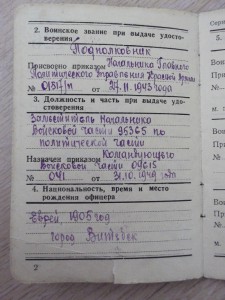 2. Воинское звание при выдаче удосто-
верения
Подполковник
Присвоено приказом Начальника Главного
Политического Управления Красной Армии
№ 01317/п от 27.11.1943 года
3. Должность и часть при выдаче
удостоверения
Заместитель Начальника
Войсковой части 95365 по
политической части
Назначен приказом Командующего
Войсковой части 04615
№ 041 от 31.10.1949 года
4. Национальность, время и место
рождения офицера
Еврей, 1905 год
город Витебск
2